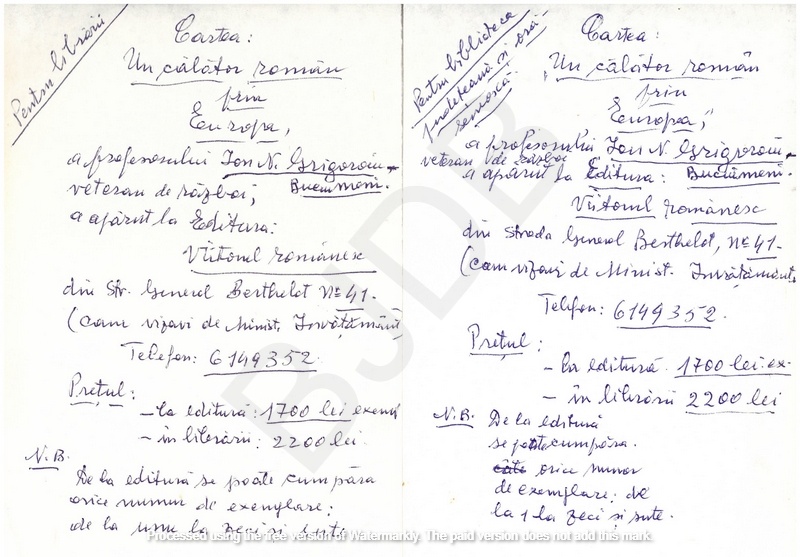 Pentru librării
Cartea:
Un călător român
prin
Europa,
a profesorului Ion N. Grigorciu-
Bucium̃eni.
veteran de război,
a apărut la Editura:
Viitorul românesc
din Str. General Berthelot Nº 41.
(Cam vizavi de Minist. Învățământ)
Telefon: 6149352.
Prețul:
– La editură: 1700 lei exempl
– în librării: 2200 lei.
N.B.
De la editură se poate cumpăra
orice număr de exemplare;
de la unu la zeci și sute.
Pentru biblioteca
județeană și oră-
șenească.
Cartea:
„Un călător român
prin
Europa,"
a profesorului Ion N. Grigorciu-
veteran de război Bucium̃eni.
a apărut la Editura:
Viitorul românesc
din strada General Berthelot, Nº 41.
(Cam vizavi de Minist. Învățământ
Telefon: 6149352.
Prețul:
– La editură 1700 lei ex-
– în librării 2200 lei
N.B. De la editură
se poate cumpăra
câte orice număr
de exemplare; de
la 1 la zeci și sute.
BJDB
Processed using the free version of Watermarkly. The paid version does not add this mark.